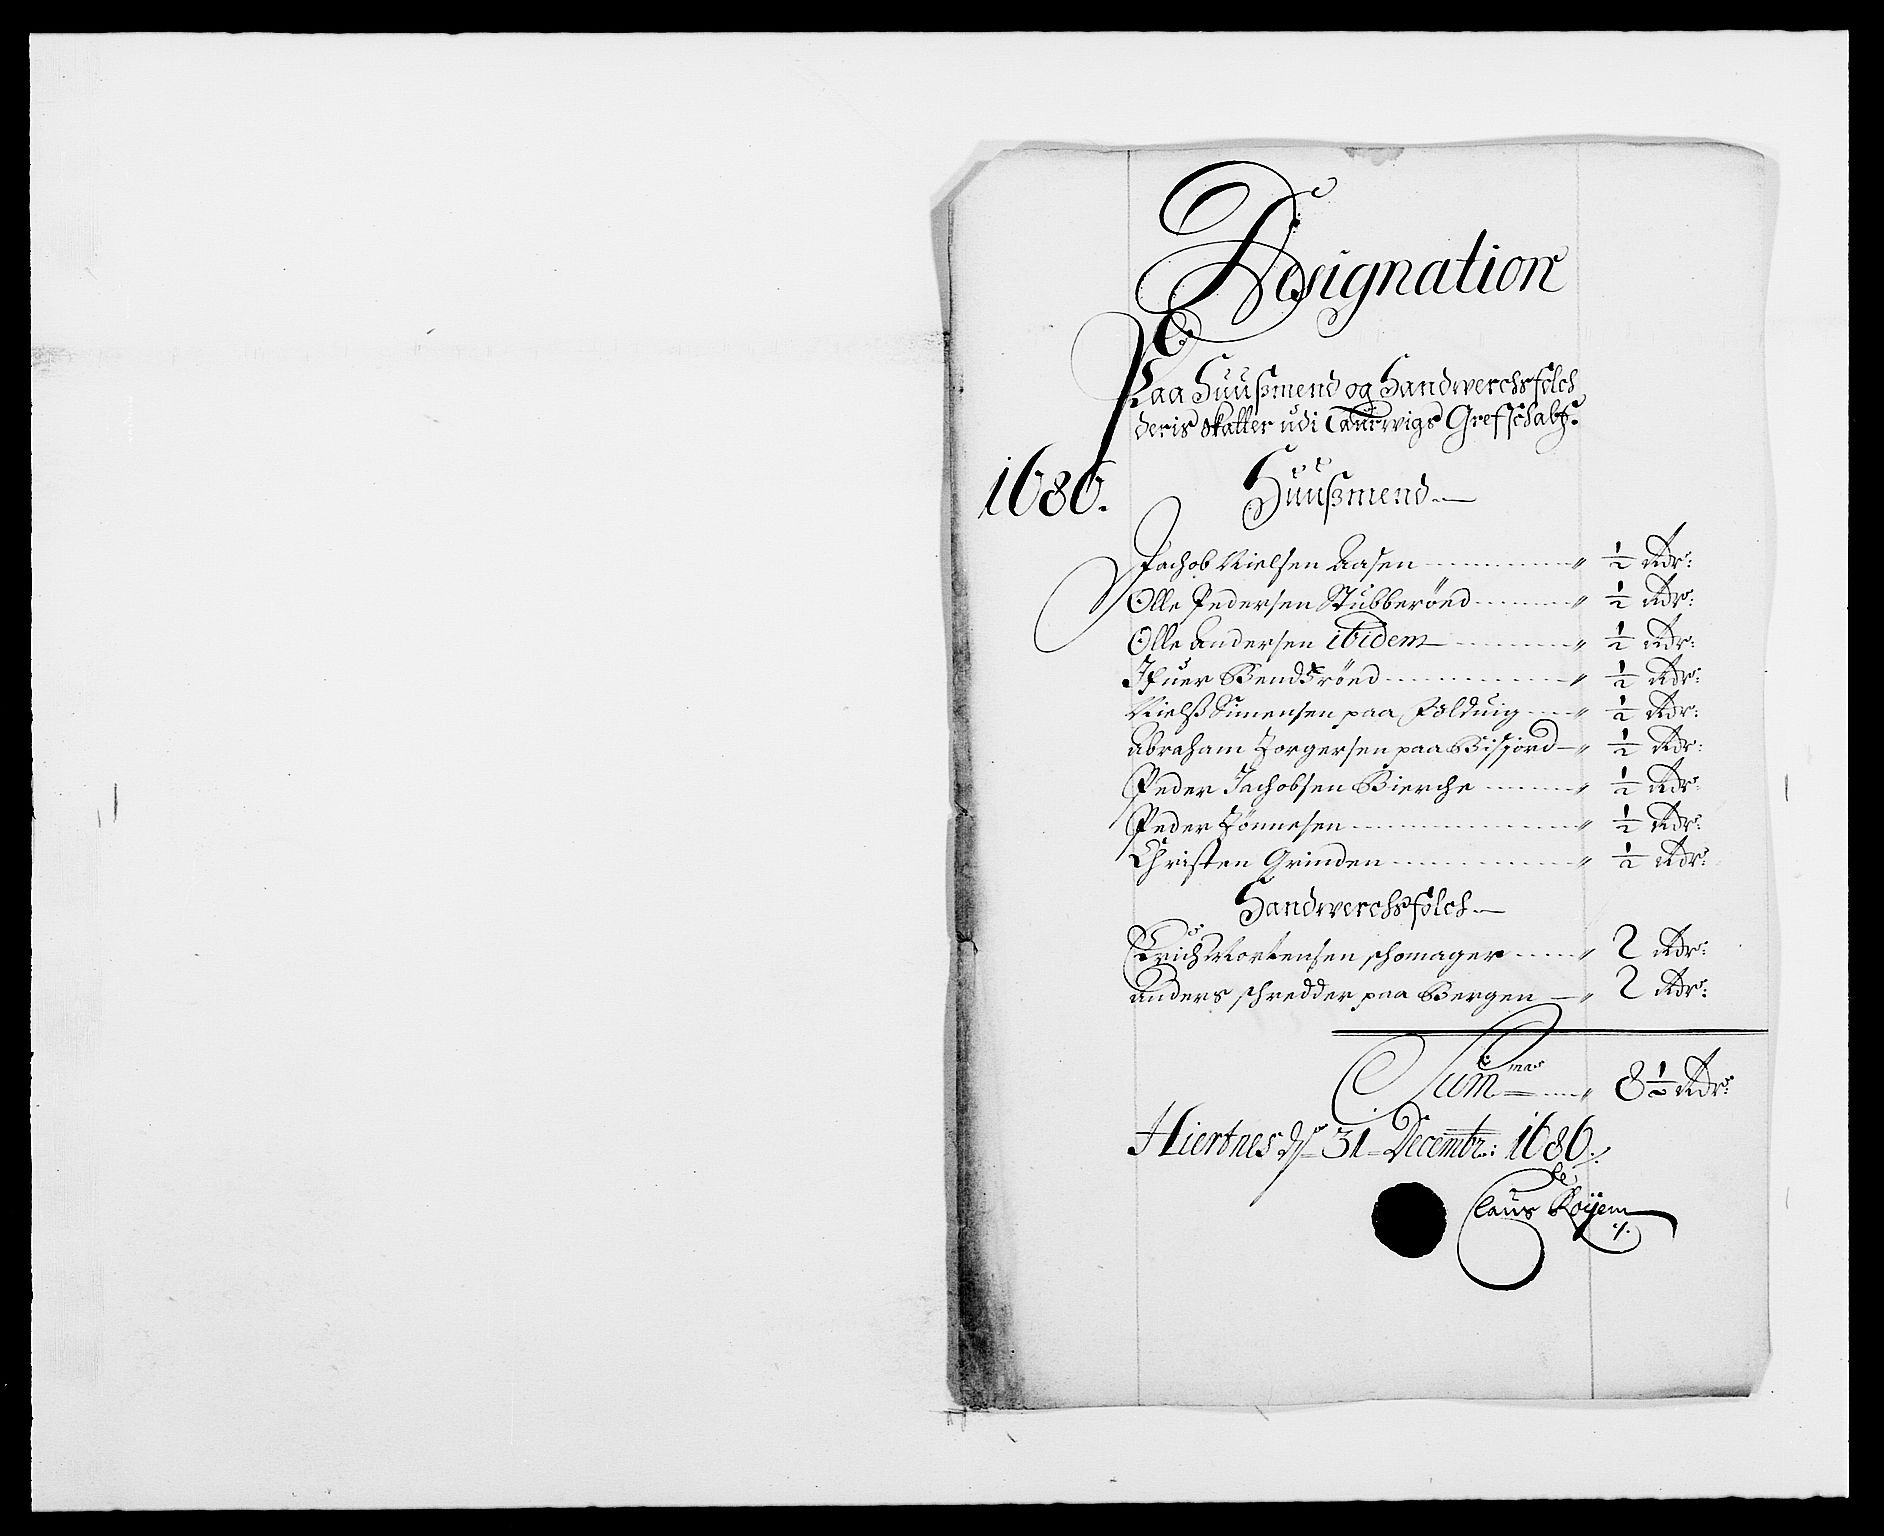 Designation
Paa Huusmend og Handwerchsfolch
deris skatter udi Laurwigs Grefschabf:
1686. Huusmend
Jachob Nielsen Aasen " ½ Rdr:
Olle Pedersen Stubberöed " ½ Rdr:
Olle Andersen ibidem " ½ Rdr:
Ifuer Bendsröed " ½ Rdr:
Nielss Simensen paa Folduig " ½ Rdr:
Abraham Jorgersen paa Bisjord " ½ Rdr:
Peder Jachobsen Bierche " ½ Rdr:
Peder Jönnesen " ½ Rdr:
Christen Grinden " ½ Rdr:
Handwerchsfolch
Erich Mortensen schomager " 2 Rdr:
Anders schredder paa Bergen " 2 Rdr:
Summa " 8½ Rdr:
Hiertnes ds 31 Decembr: 1686
Claus Röyem